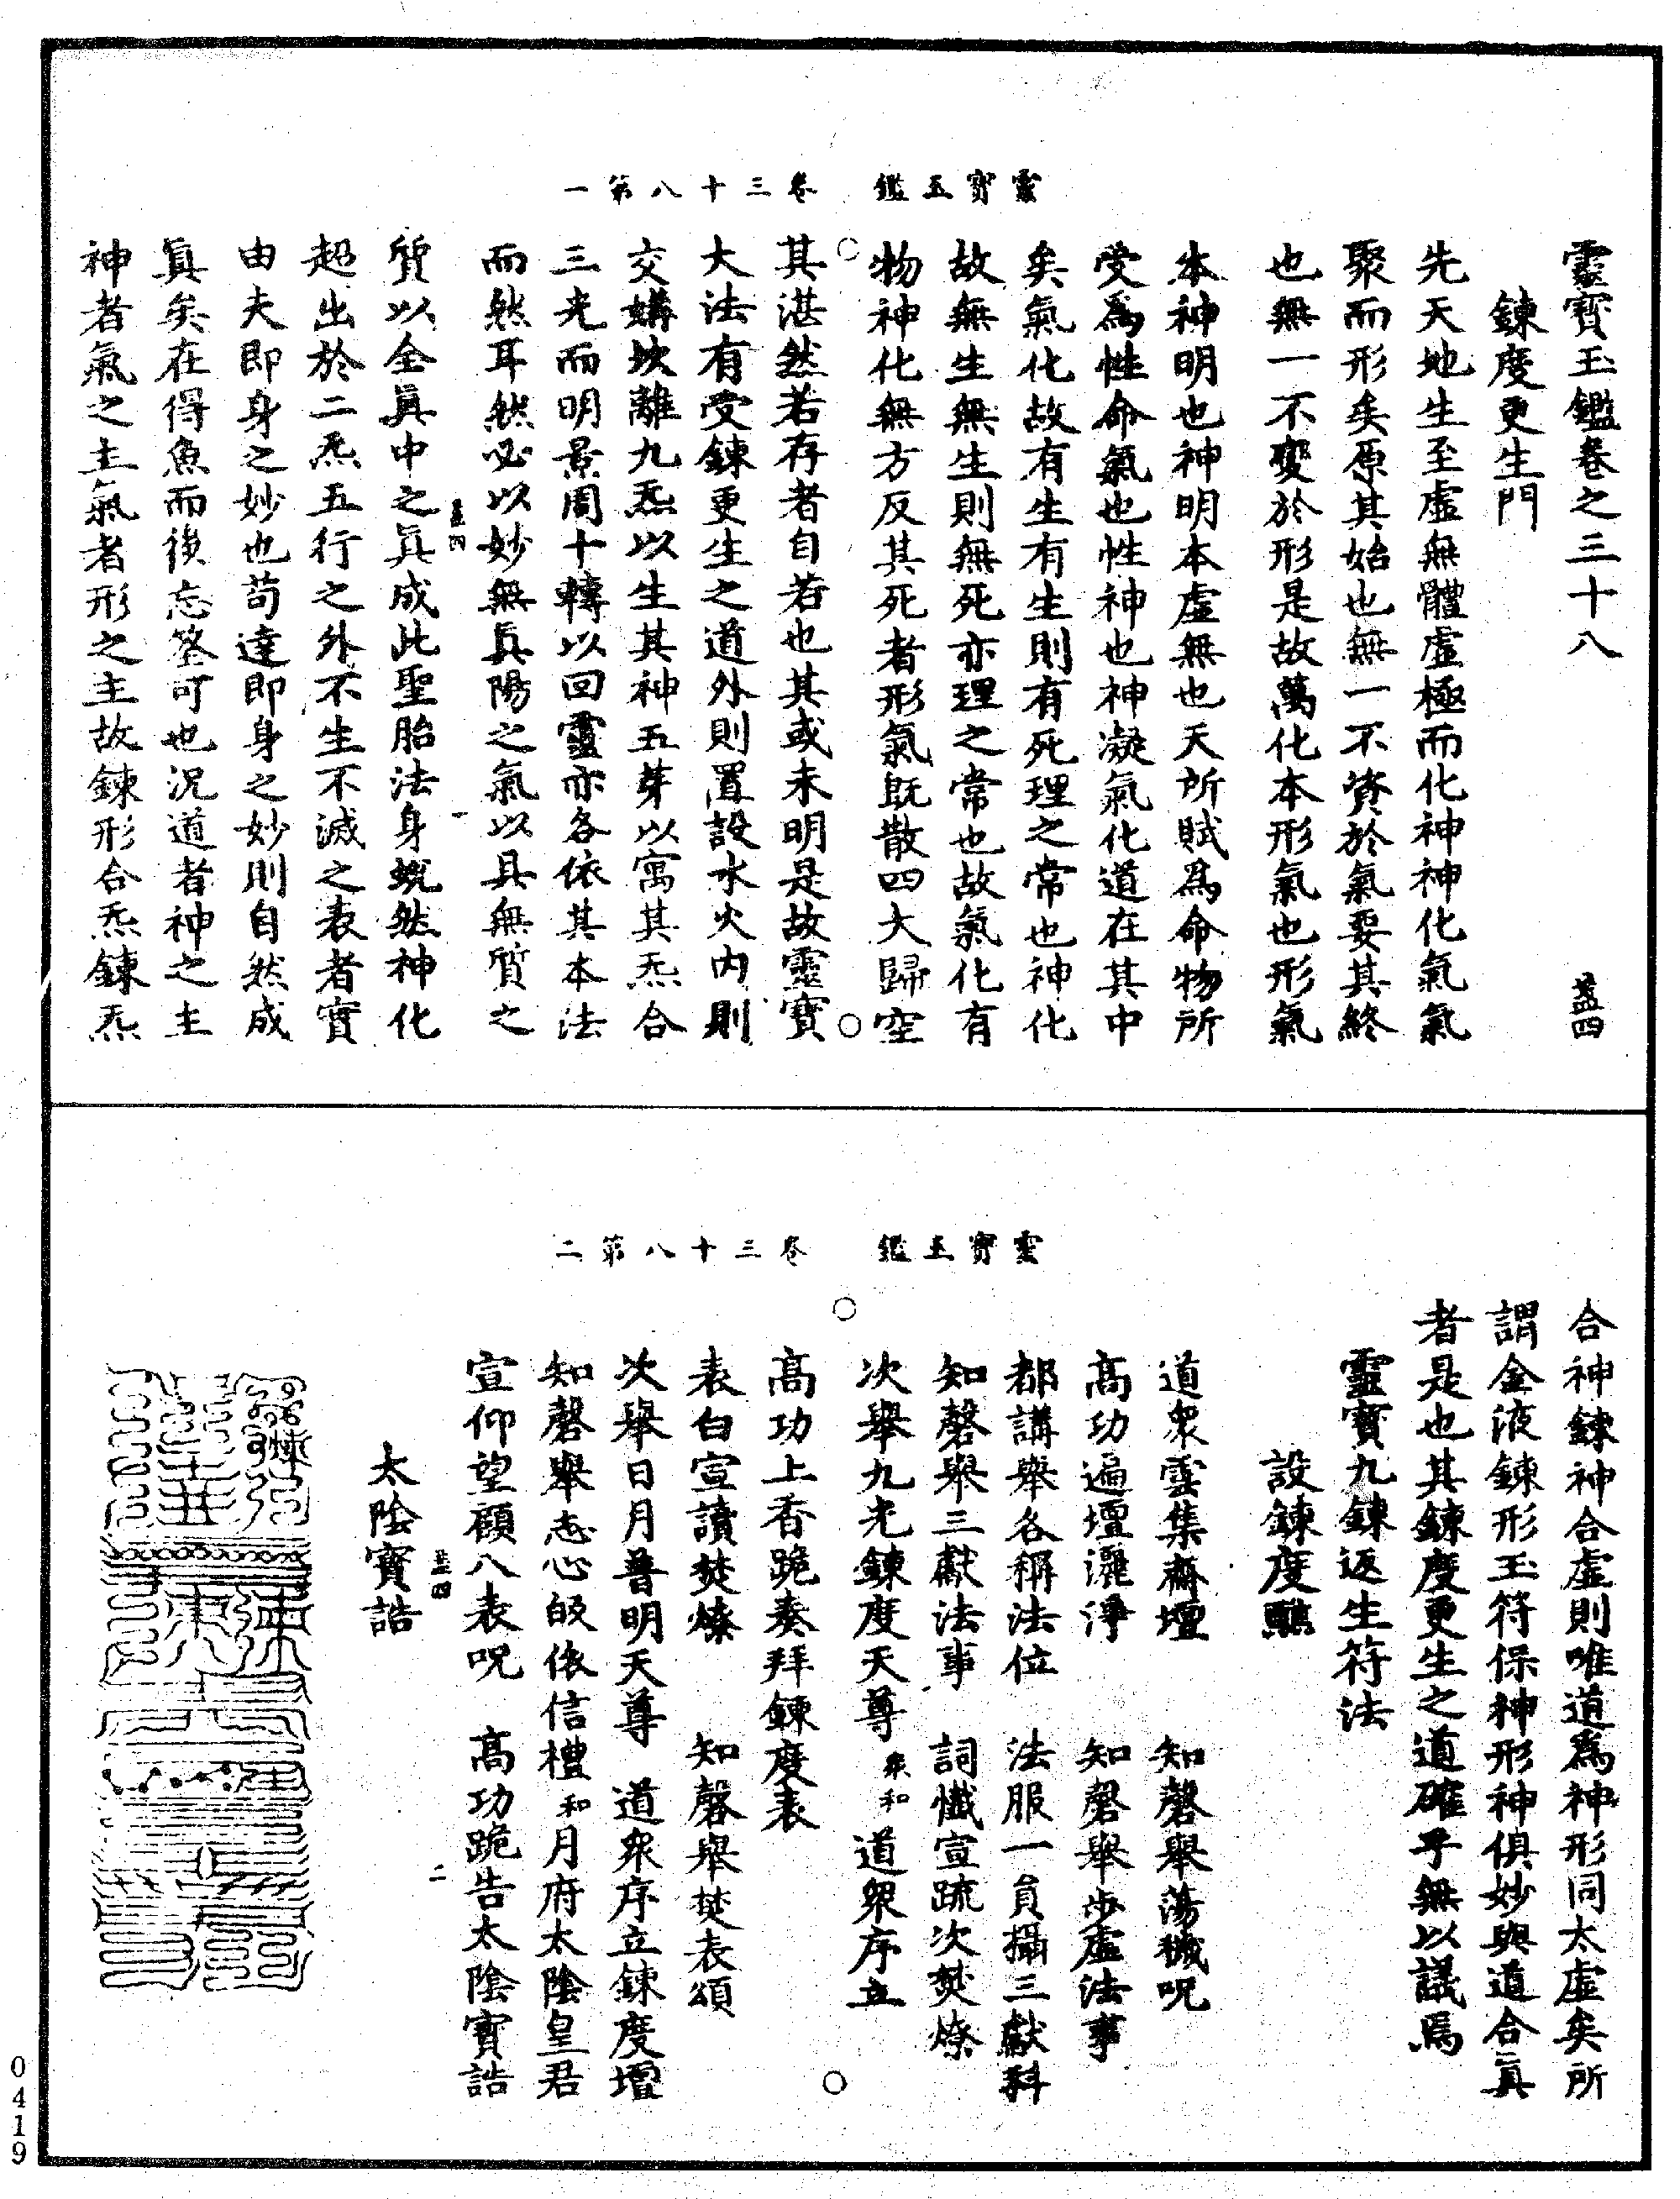 靈寶玉鑑　卷三十八第一
靈寶玉鑑卷之三十八
盖四
鍊度更生門
先天地生至虛無體虛極而化神神化氣氣
聚而形矣原其始也無一不資於氣要其終
也無一不變於形是故萬化本形氣也形氣
本神明也神明本虛無也天所賦爲命物所
受爲性命氣也性神也神凝氣化道在其中
矣氣化故有生有生則有死理之常也神化
故無生無生則無死亦理之常也故氣化有
物神化無方反其死者形氣既散四大歸空
其湛然若存者自若也其或未明是故靈寶
大法有受鍊更生之道外則置設水火內則
交媾坎離九炁以生其神五芽以寓其炁合
三光而明景周十轉以回靈亦各依其本法
而然耳然必以妙無眞陽之氣以具無質之
質以全眞中之眞成此聖胎法身蛻然神化
盖四
一
超出於二炁五行之外不生不滅之表者實
由夫即身之妙也苟達即身之妙則自然成
眞矣在得魚而後忘筌可也況道者神之主
神者氣之主氣者形之主故鍊形合炁鍊炁
靈寶玉鑑　卷三十八第二
合神鍊神合虛則唯道爲神形同太虛矣所
謂金液鍊形玉符保神形神俱妙與道合眞
者是也其鍊度更生之道確乎無以議焉
靈寶九鍊返生符法
設鍊度醮
道衆雲集齋壇　知磬舉蕩穢呪
高功遍壇灑淨　知磬舉步虛法事
都講舉各稱法位　法服一員攝三獻科
知磬舉三獻法事　詞懺宣疏次焚燎
次舉九光鍊度天尊衆和　道衆序立
高功上香跪奏拜鍊度表
表白宣讀焚燎　知磬舉焚表頌
次舉日月普明天尊　道衆序立鍊度壇
知磬舉志心皈依信禮和月府太陰皇君
宣仰望顧八表呪　高功跪告太陰寶誥
盖四
二
太陰寶誥
0419